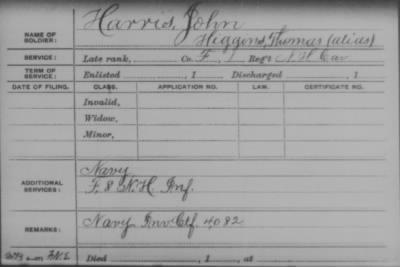 Harris, John
NAME OF SOLDIER: Higgins, Thomas (alias)
SERVICE: Late rank, Co. F, 1 Reg't N.H. Cav
TERM OF SERVICE: Enlisted , 1 Discharged , 1
DATE OF FILING. CLASS. APPLICATION NO. LAW. CERTIFICATE NO.
Invalid,
Widow,
Minor,
ADDITIONAL SERVICES: Navy
F. 8 N.H. Inf.
REMARKS: Navy Inv Ctf. 4082
Died , 1 , at